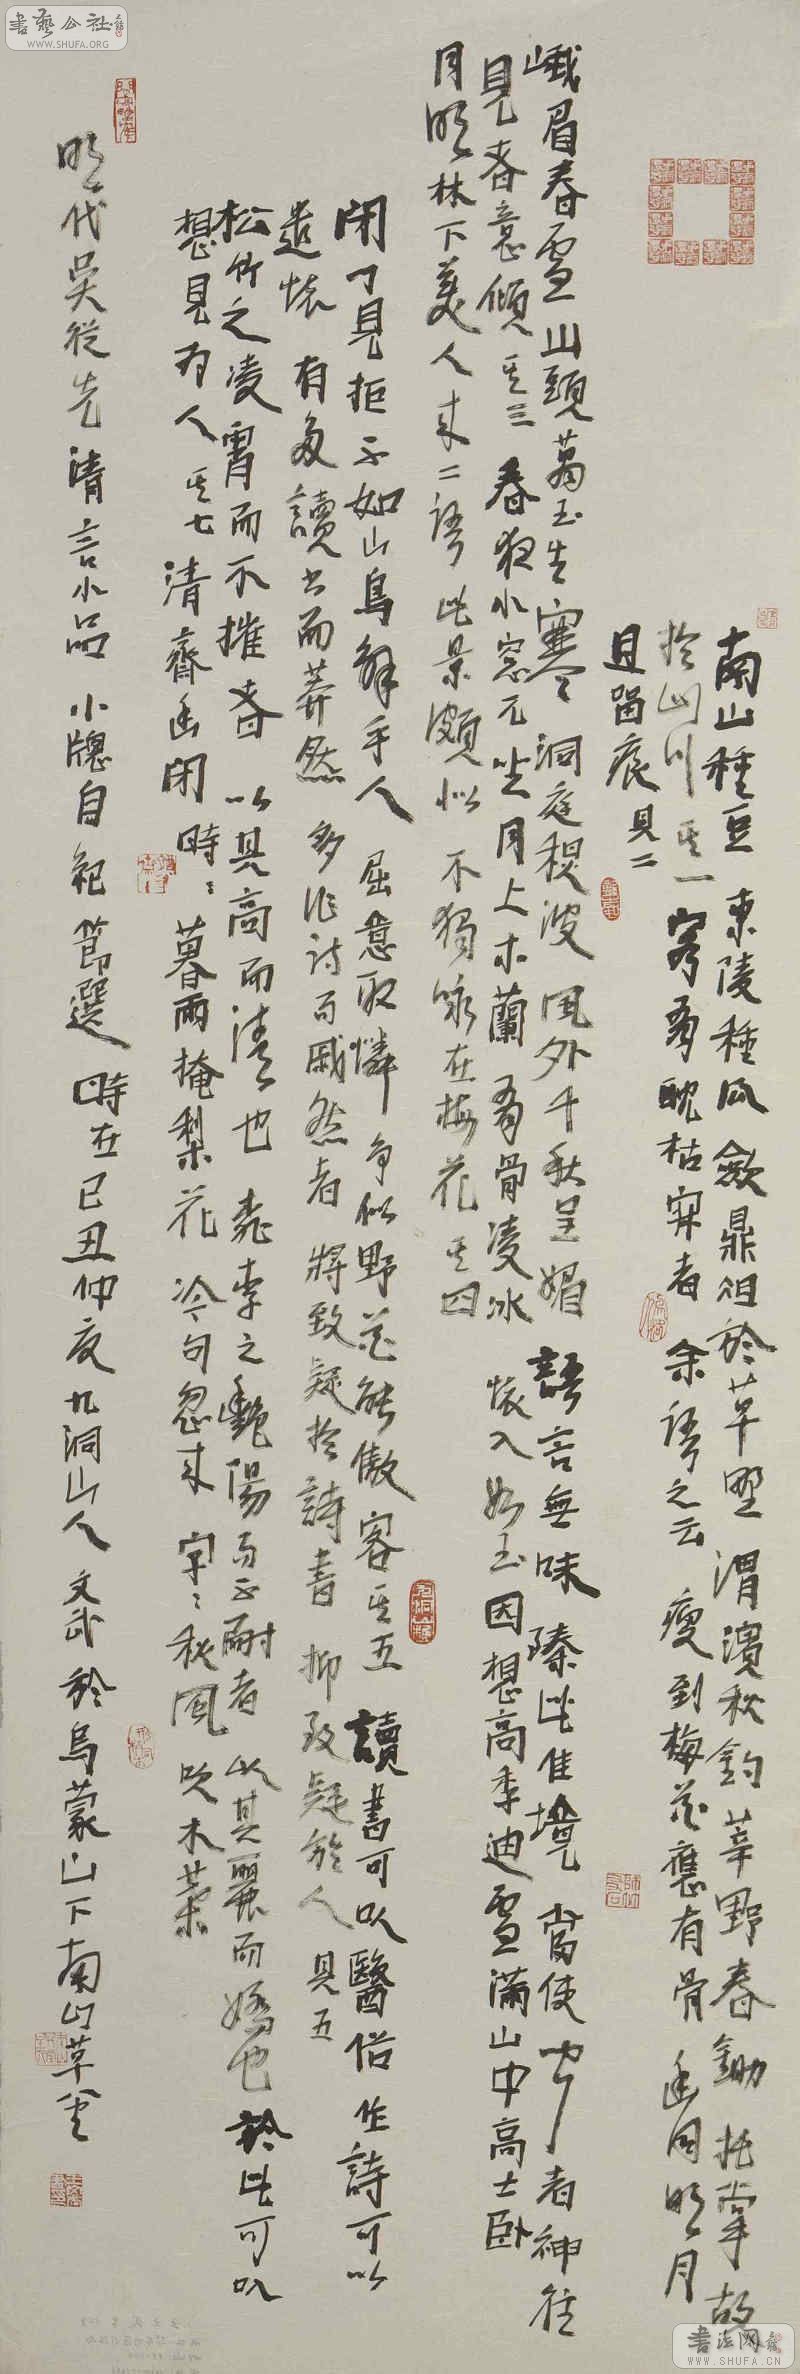 南山種豆東陵種瓜歛鼎俎於草野渭濱秋釣莘野春鋤托掌故
於山川其一客有耽枯寂者余語之云瘦到梅花應有骨幽同明月
且留痕見二
峨眉春雪山頭萬玉生寒洞庭秋波風外千秋呈媚語言無味臻此佳境當使聞者神往
見者意傾其三春夜小窓兀坐月上木蘭有骨凌冰懷入如玉因想高季迪雪滿山中高士臥
月明林下美人來二語此景頗似不獨咏在梅花其四
閉門見拒不如山鳥解手人屈意取憐爭似野花能傲客其五讀書可以醫俗作詩可以
遣懷有多讀書而莽然多作詩而戚然者將致疑於詩書抑致疑於人見五
松竹之凌霄而不摧者以其高而清也桃李之艷陽而不耐者以其麗而嬌也於此可以
想見为人其七清齋幽閉時時暮雨掩梨花冷句忽來字字秋風吹木葉
明代吳從先清言小品小牕自紀節選時在己丑仲夏九洞山人文武於烏蒙山下南山草堂
書藝公社
WWW.SHUFA.ORG
書法网
WWW.SHUFA.CN